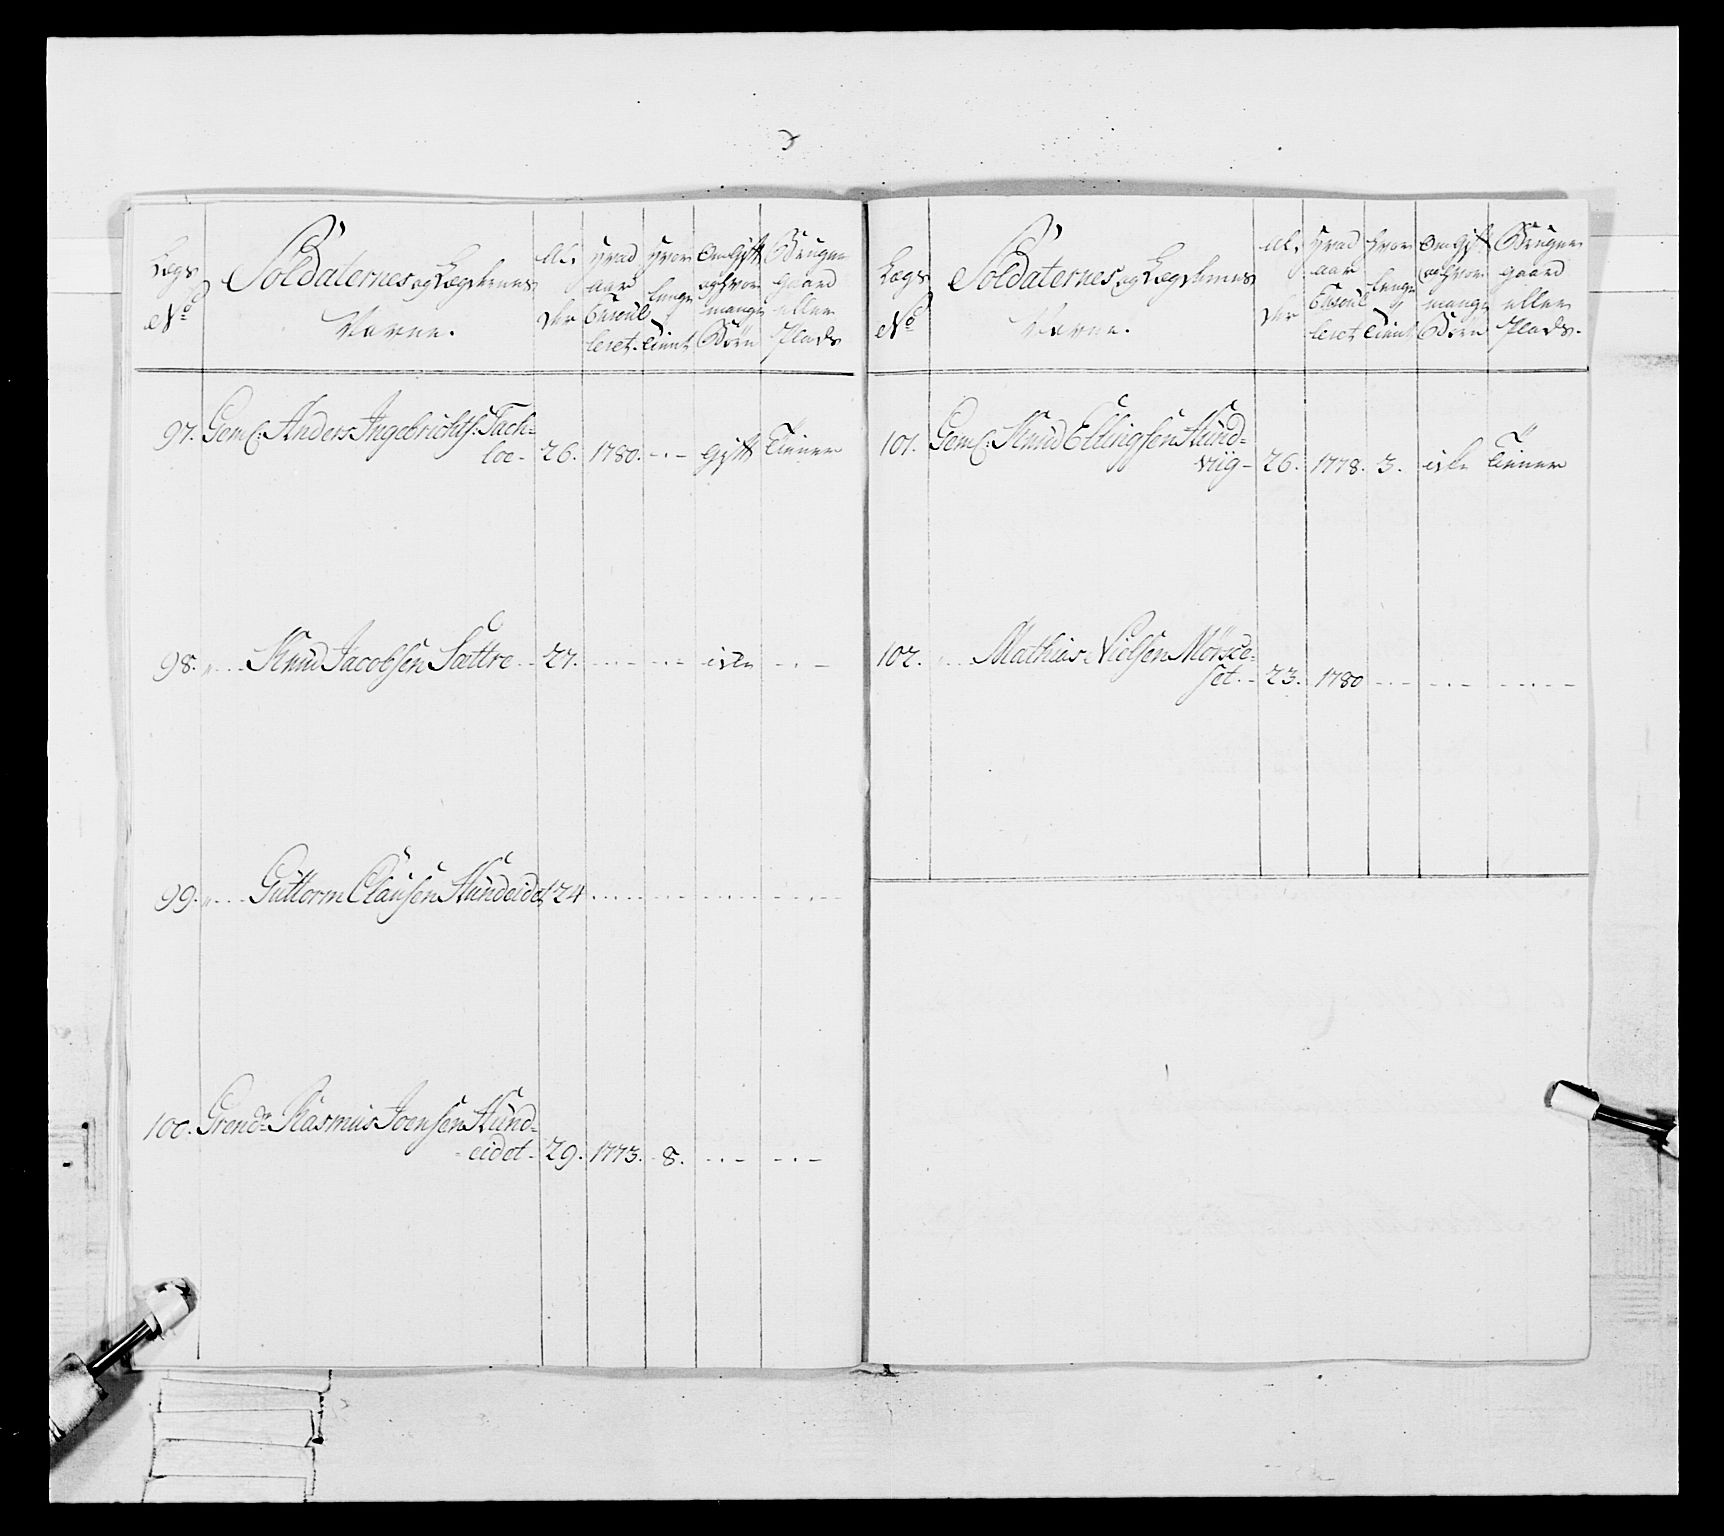 Legs No
Soldaternes og Legdernes Navne.
Alder
Hvad aar Enroulleret
Hvor lenge Tient
Om Gift og hvor mange Børn
Bruger gaard eller Plads
97. Gem: Anders Ingebrichts: Tach=
loe - 26. 1780. - . - Gift Tiener
98. " Knud Jacobsen Sættre - 27. - . - . - icke - . -
99. " Guttorm Clausen Hundeidet 24
100. Grendr Rasmus Joensen Hund=
eidet - 29. 1773. 8. - . - - . -
Legs No
Soldaternes og Legdernes Navne.
Alder
Hvad aar Enroulleret
Hvor lenge Tient
Om Gift og hvor mange Børn
Bruger gaard eller Plads.
101. Gem: Knud Ellingsen Hund=
viig - 26. 1778. 3. icke Tiener
102. " Mathias Nielsen Morsce=
set. - 23. 1780 - . - - . - - . -